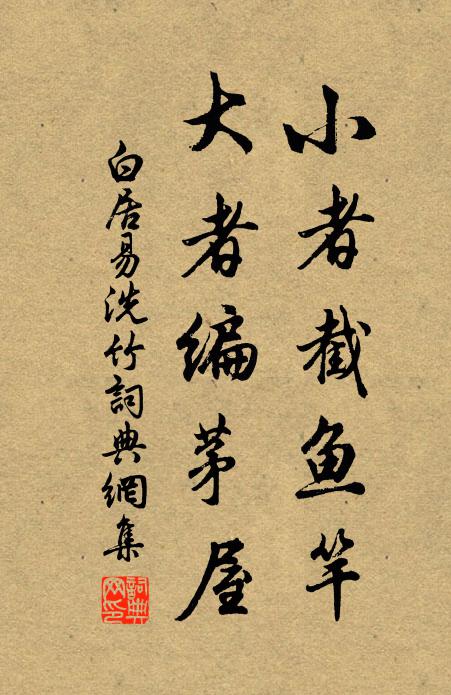 小者截鱼竿
大者编茅屋
白居易洗竹詞典網集
詞典网印